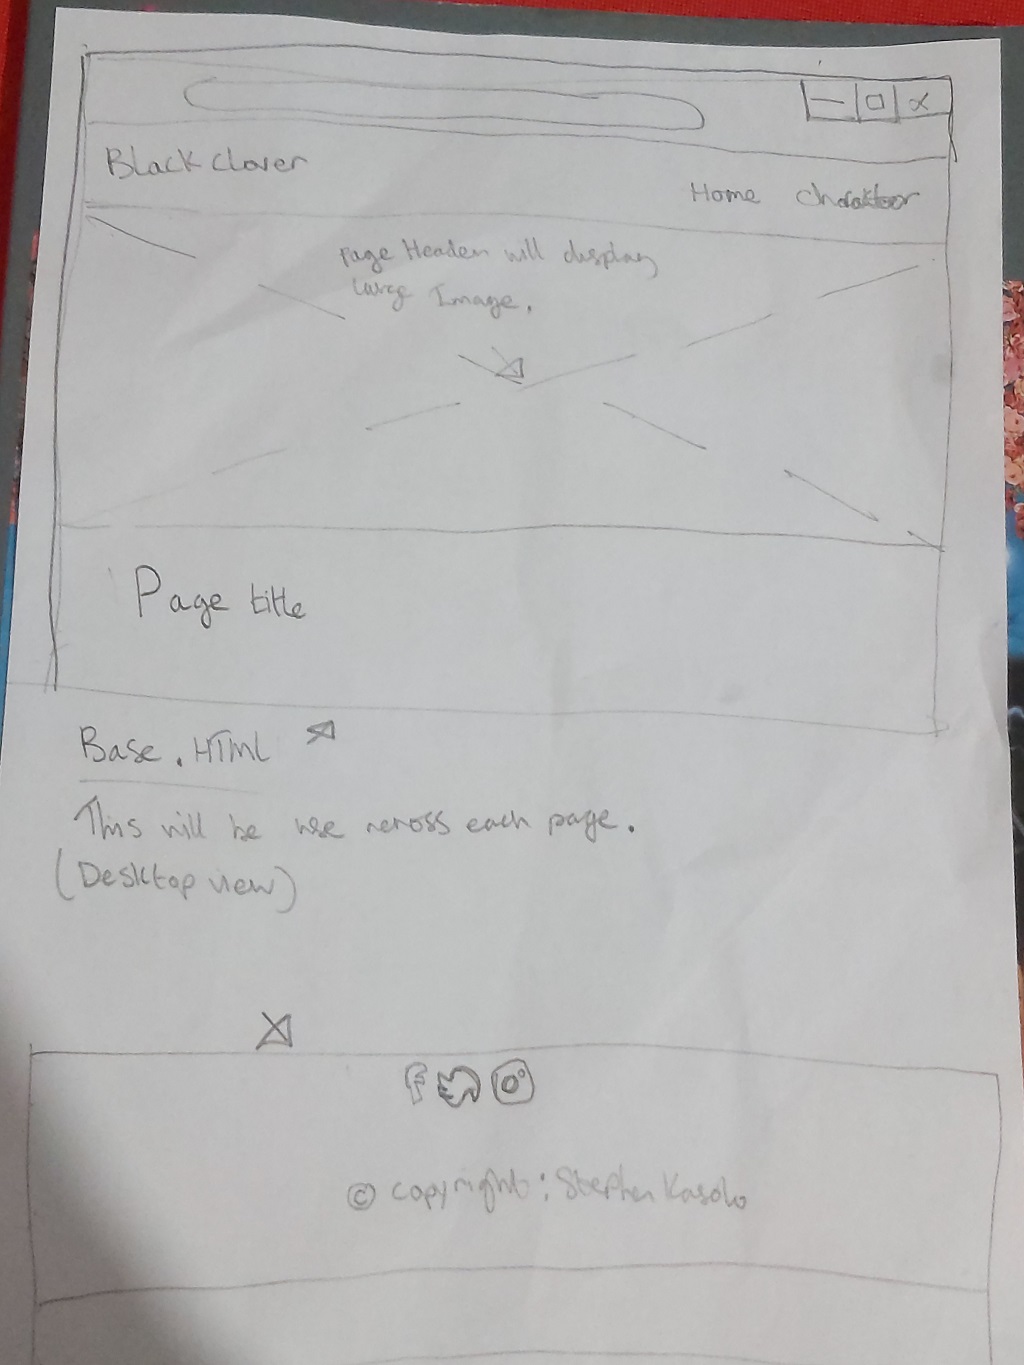 Black clover
Home charakter
page Header will display
large Image.
Page title
Base.HTML
This will be use across each page.
(Desktop view)
© copyright: Stephen Kasolo